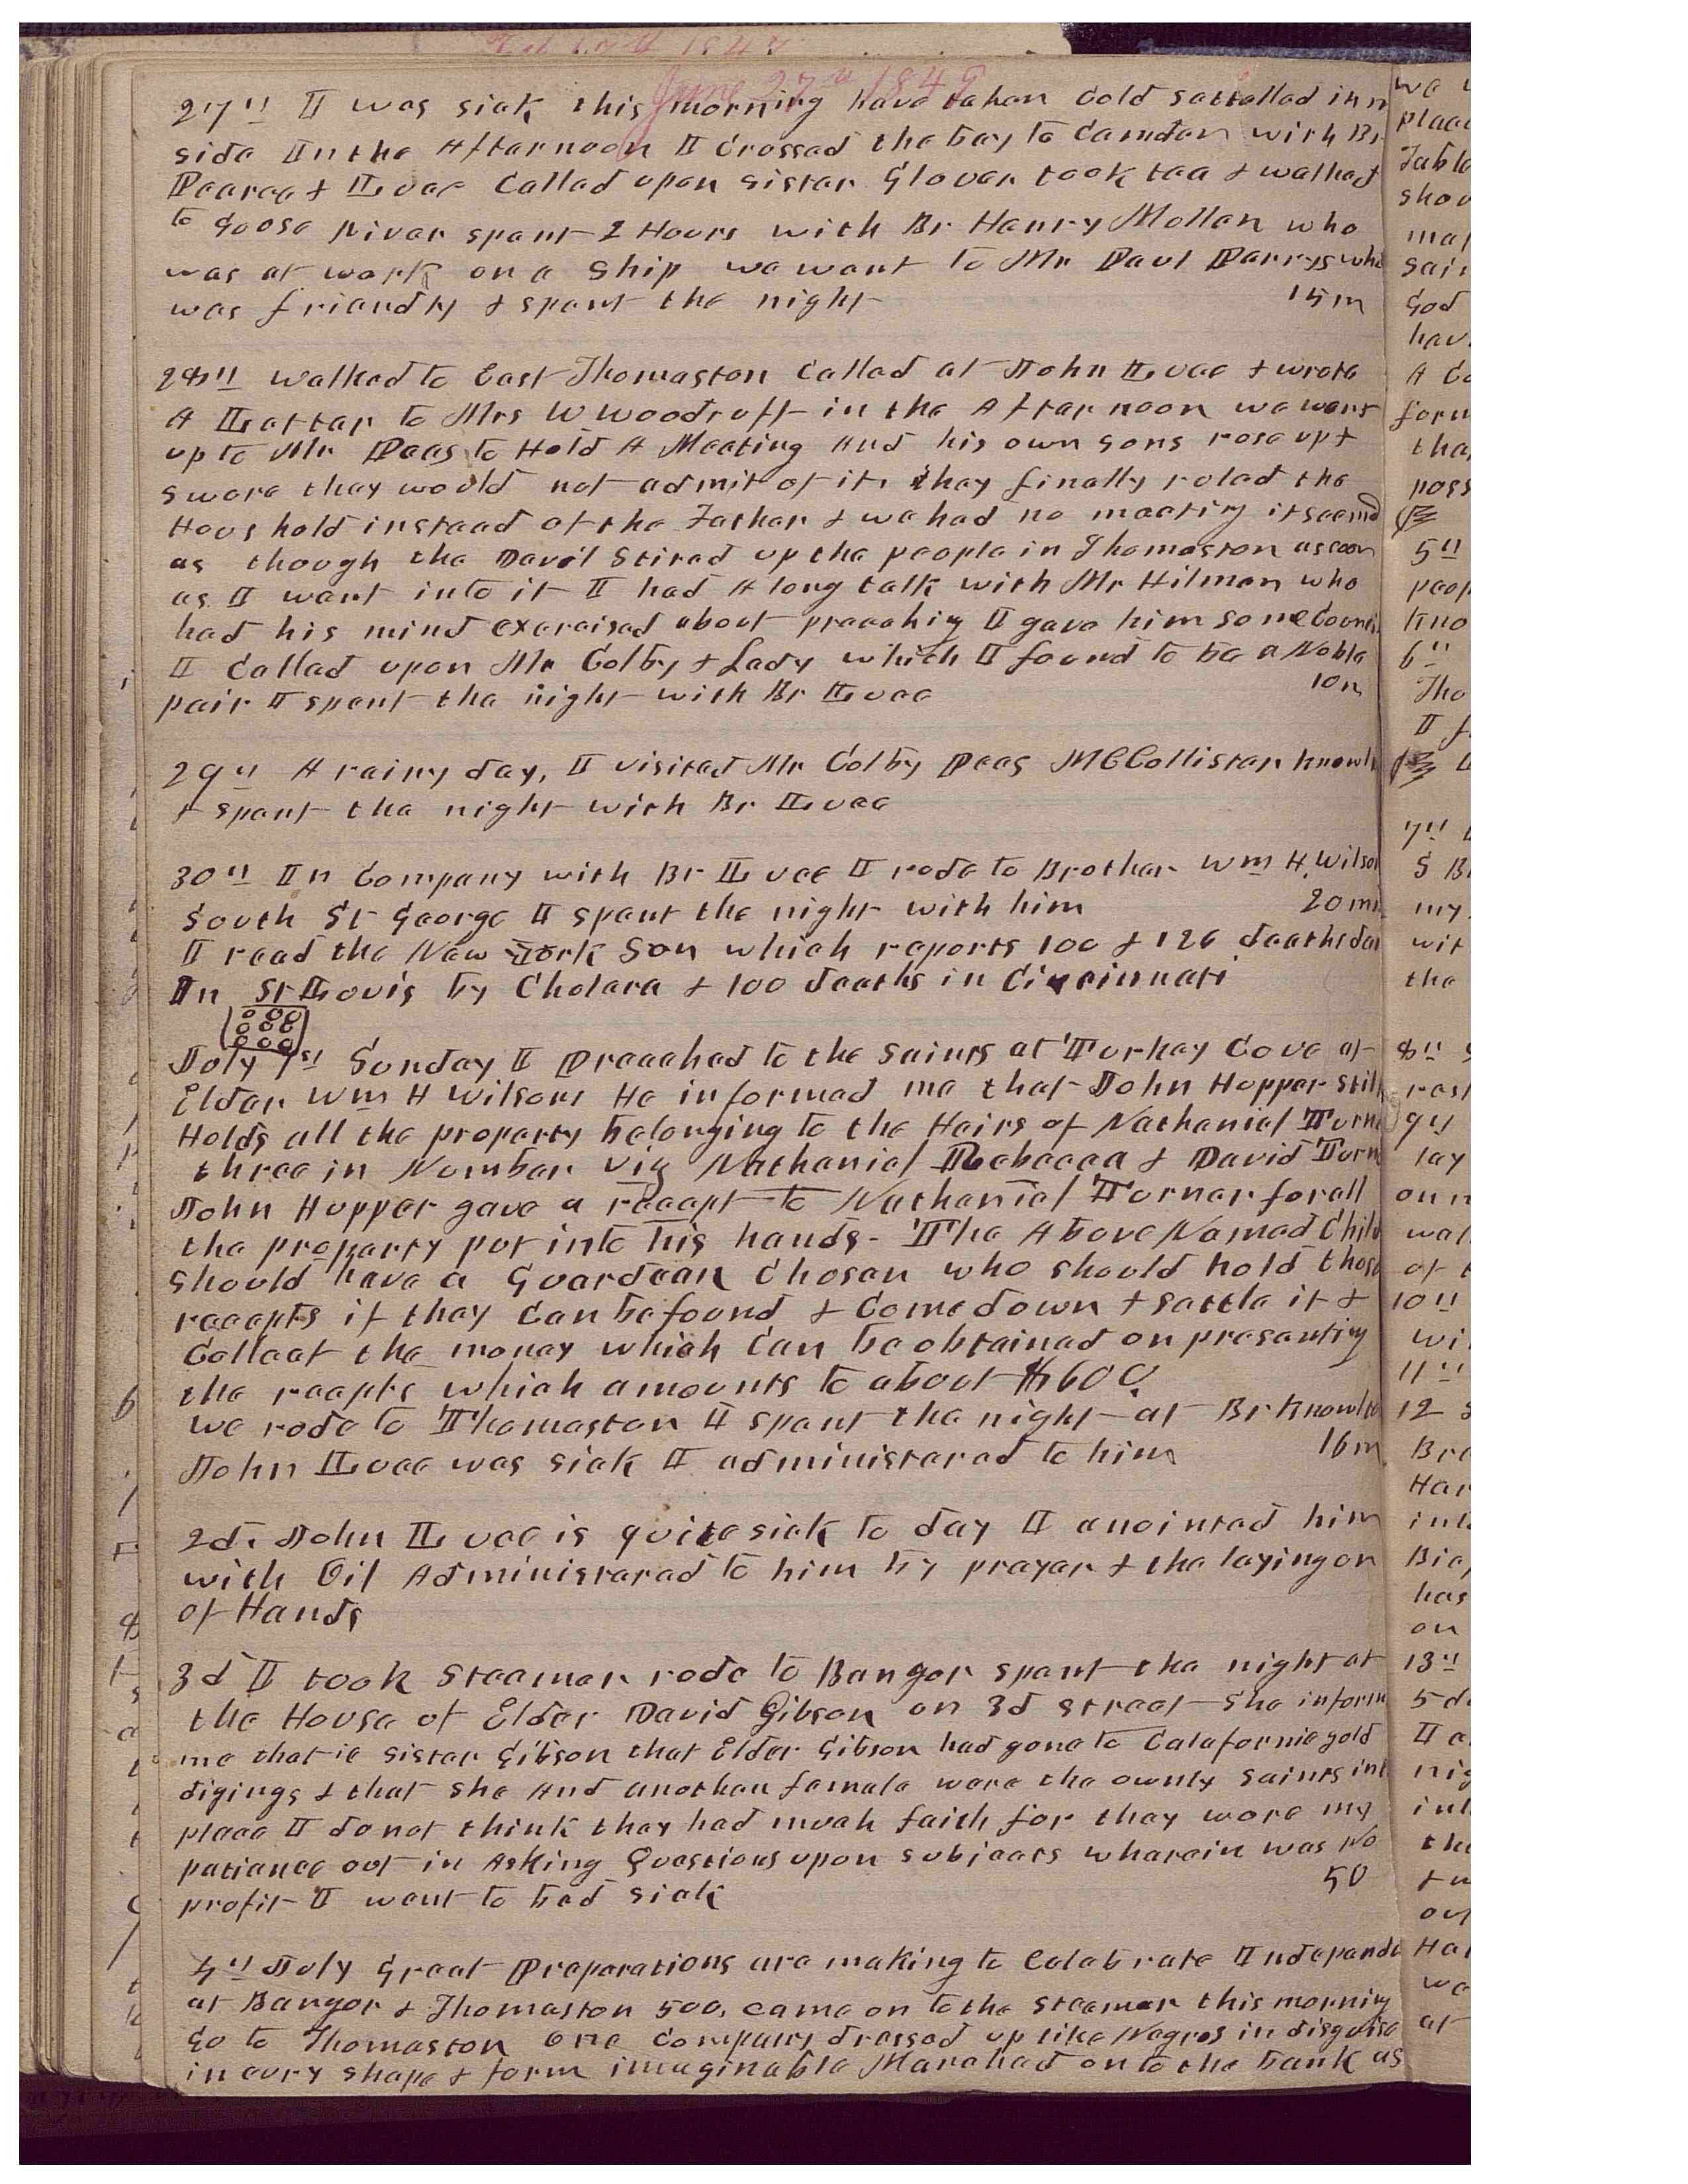 June 27th 1849
27th I was sick this morning have taken Cold settelled in m
side In the Afternoon I Crossed the bay to Camden with Br
Pearce & Luce Called upon Sister Glover took tea & walked
to Goose River spent 2 Hours with Br Henry Mollen who
was at work on a Ship we went to Mr Paul Perrys who
was friendly & spent the night 15 m
28th walked to East Thomaston Called at John Luce & wrote
A Letter to Mrs W Woodruff in the Afternoon we went
up to Mr Pees to Hold A Meeting And his own sons rose up &
swore they would not admit of it. they finally ruled the
Hous hold instead of the Father & we had no meeting it seemd
as though the Devil Stired up the people in Thomaston as soon
as I went into it I had A long talk with Mr Hilmon who
had his mind exercised about preachig I gave him some Councl
I Called upon Mr Colby & Lady which I found to be a Noble
pair I spent the night with Br Luce 10 m
29th A rainy day, I visited Mr Colby Pees McCollister Knowl
& spent the night with Br Luce
30th In Company with Br Luce I rode to Brother Wm H. Wilson
South St George I spent the night with him 20 m
I read the New York Sun which reports 100 & 126 deaths da
In St Louis by Cholera & 100 deaths in Cincinnati
July 1st Sunday I Preached to the Saints at Turkey Cove at
Elder Wm H Wilsons He informed me that John Hupper still
Holds all the property belonging to the Heirs of Nathaniel Turn
three in Number viz Nathaniel Rebecca & David Turn
John Hupper gave a receept to Nathaniel Turner for all
the property put into his hands- The Above Named Chil
should have a Guardean Chosen who should hold those
receepts if they Can be found & Come down & settle it &
Collect the money which Can be obtained on presentig
the recepts which amounts to about $600.
we rode to Thomaston I spent the night at Br Knowlt
John Luce was sick I administered to him 16 m
2d. John Luce is quite sick to day I anointed him
with Oil Administered to him by prayer & the laying on
of Hands
3d I took Steemer rode to Bangor spent the night at
the House of Elder David Gibson on 3d street She inform
me that ie Sister Gibson that Elder Gibson had gone to Calafornie gold
digings & that she And another female were the ownly saints in t
place I do not think they had much faith for they wore my
patience out in Asking Questions upon subjects wherein was No
profit I went to bed sick 50
4th July Great Preparations are making to Celebrate Independe
at Bangor & Thomaston 500, came on to the steemer this mornig
Go to Thomaston one Company dressed up like Negros in disguise
in evry shape & form imaginable Marched on to the bank as